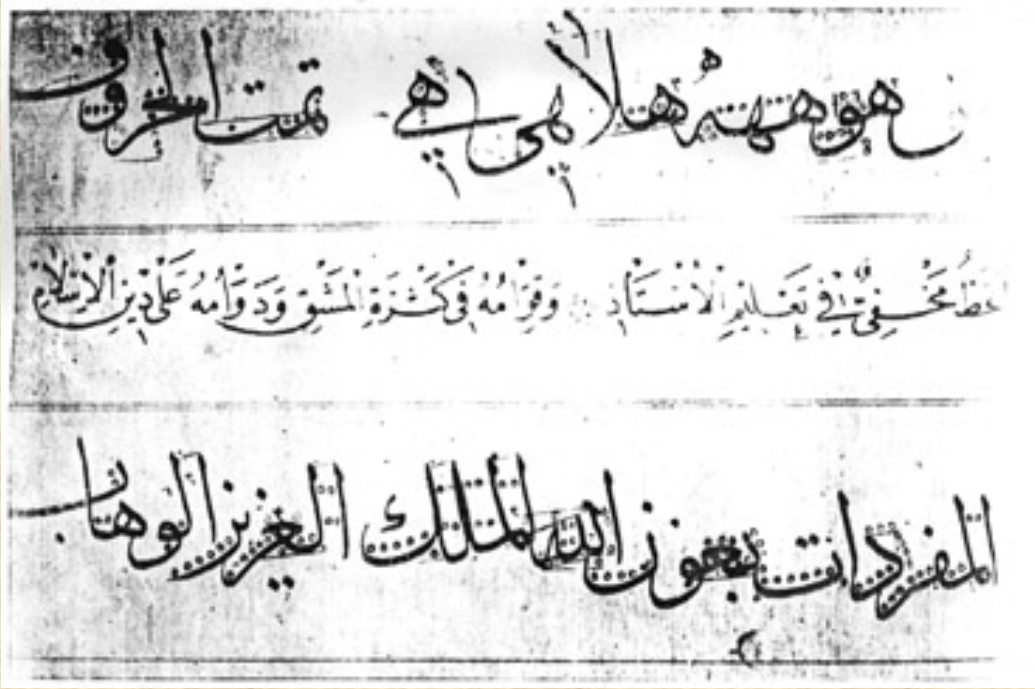 ن هو هه هته هلا لهى هي تمت الحروف
الخَطُّ مَخْفِيٌّ فِي تَعْلِيمِ الْاُسْتَاذِ وَقِوَامُهُ فِي كَثْرَةِ الْمَشْقِ وَدَوَامُهُ عَلَى دِينِ الْاِسْلَامِ
المفردات بعون الله الملك العزيز الوهاب